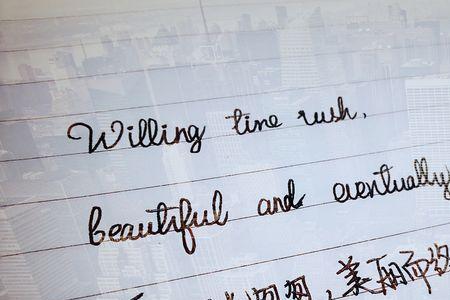 Willing time rush.
beautiful and eventually
匆匆，美丽而终